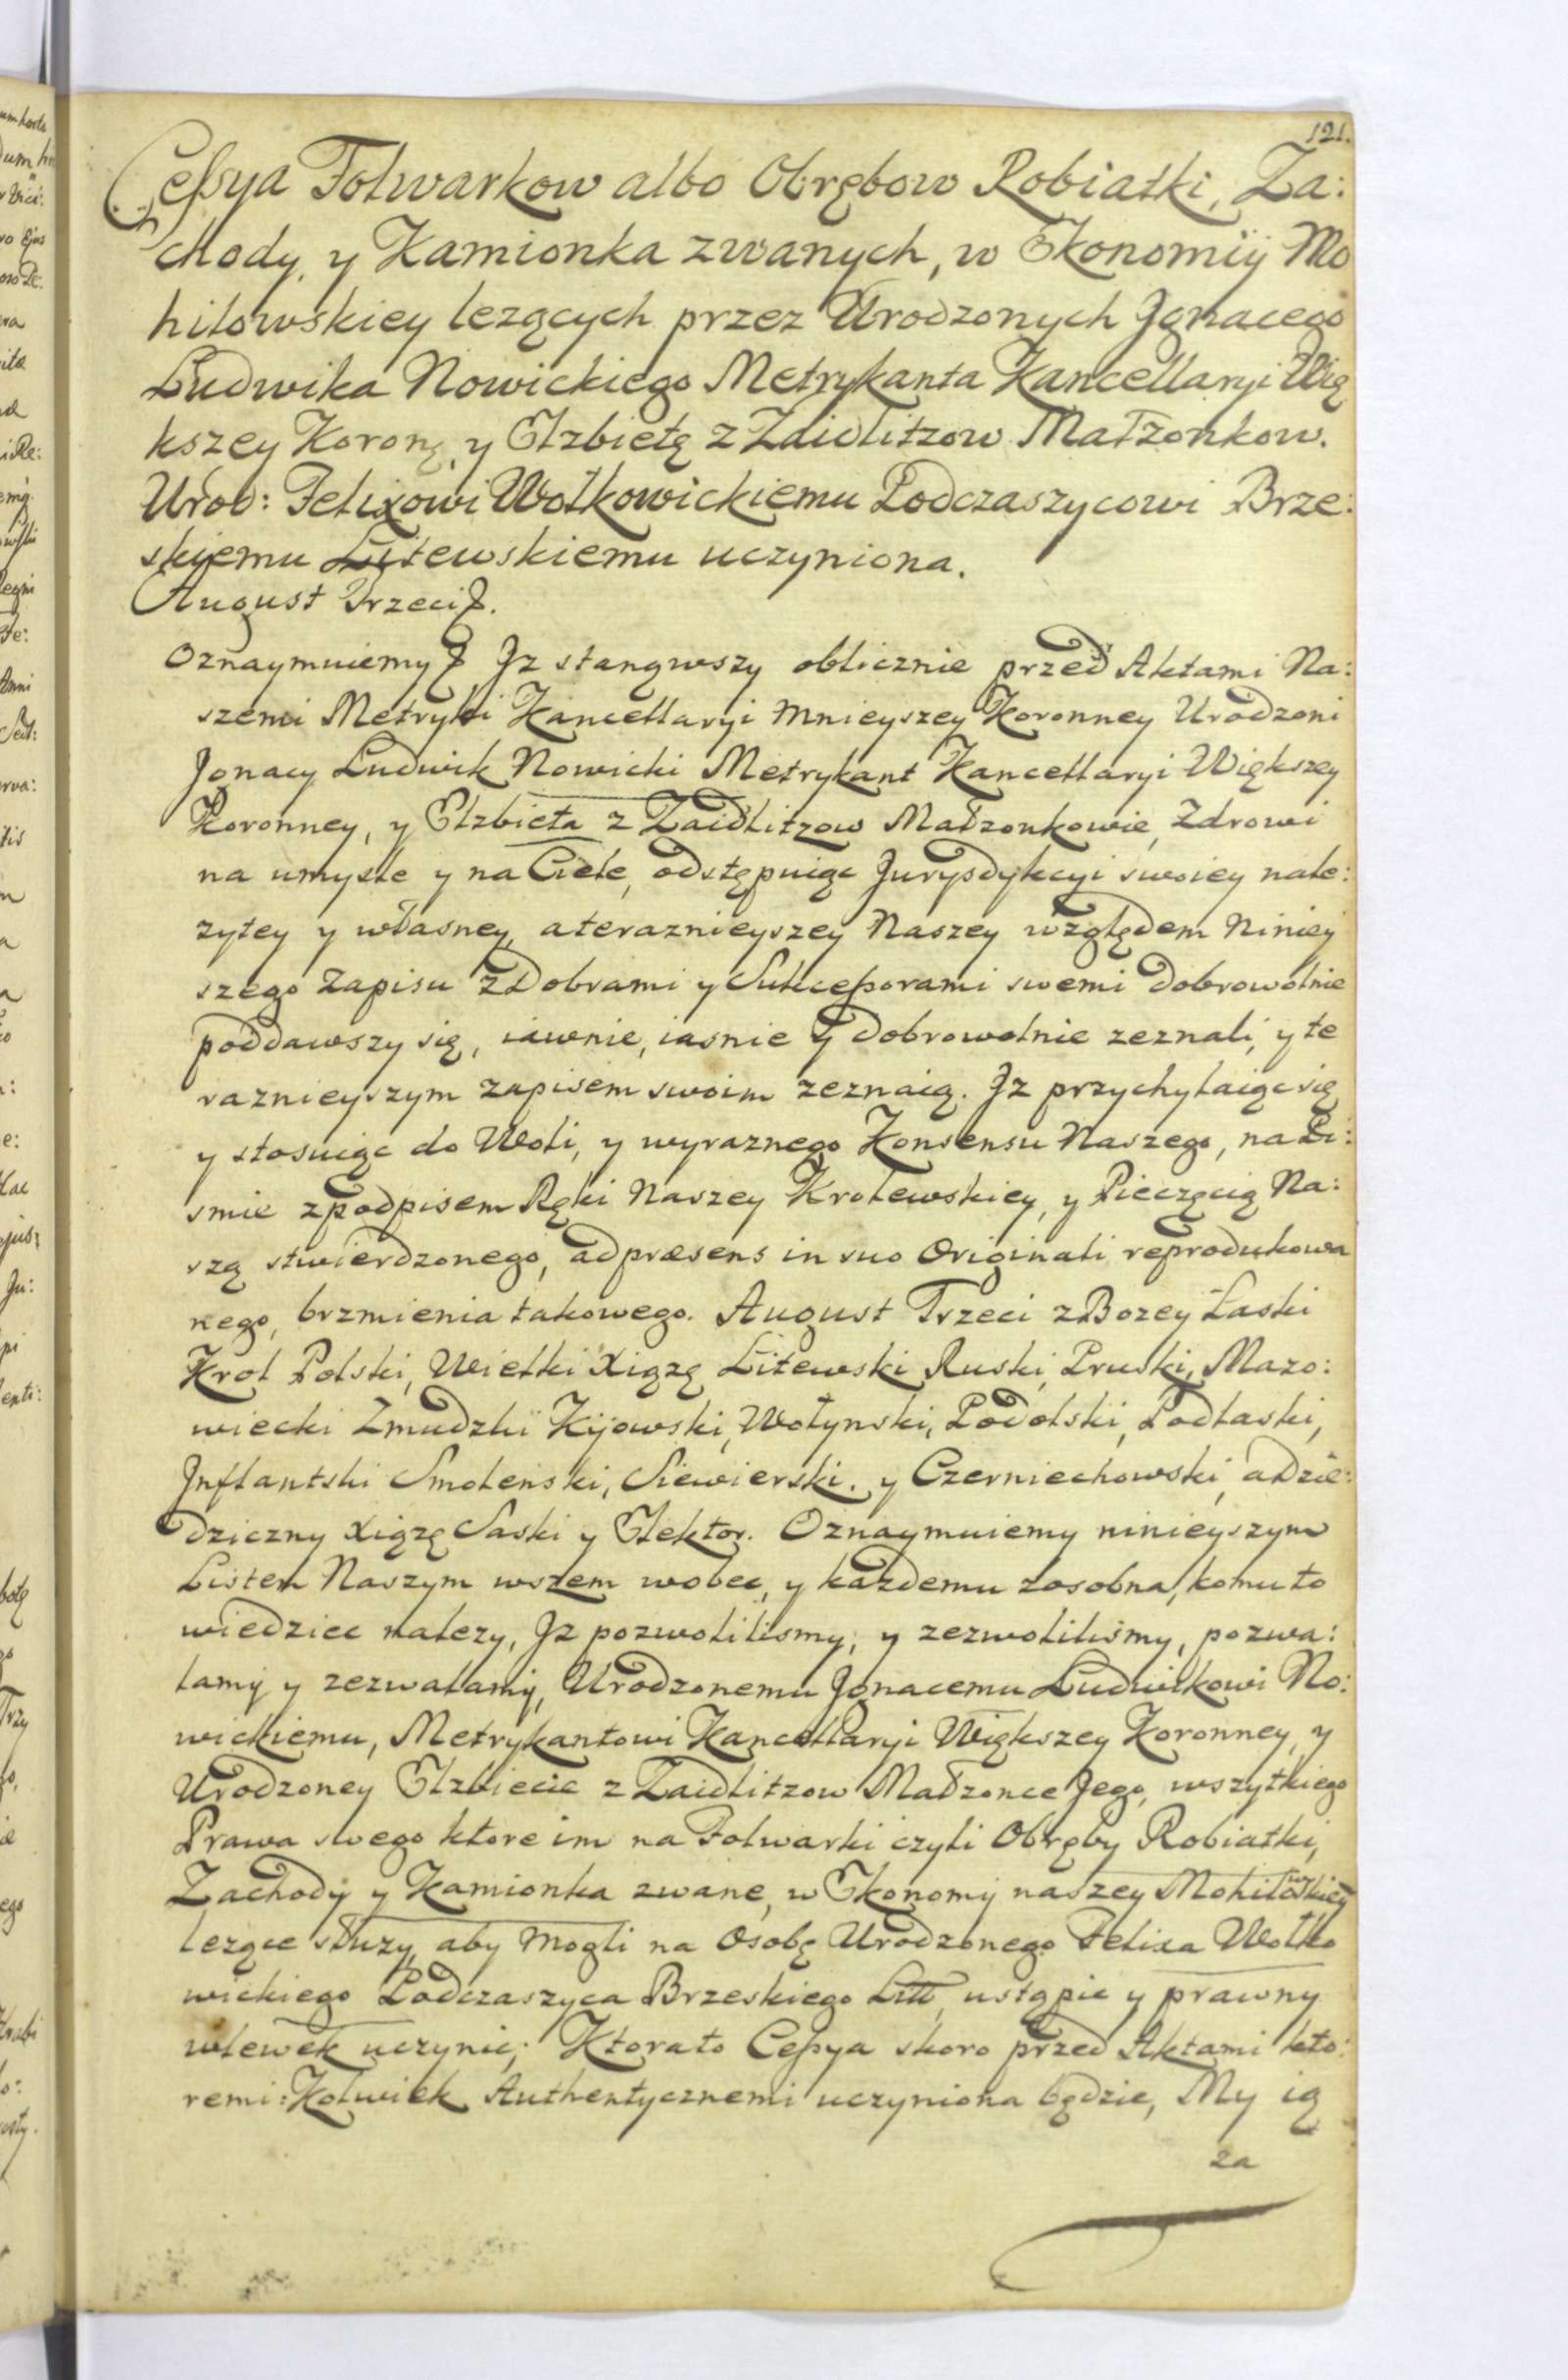 121.
Cessya Folwarkow albo Obrębow Robiatki, Za:
chody, y Kamionka zwanych, w Ekonomiij Mo
hilowskiey lezących przez Urodzonych Jgnacego
Ludwika Nowickiego Metrykanta Kancellaryi Wię
kszey Koronę, y Elzbietę z Zaidlitzow Małzonkow.
Urod: Felixowi Wołkowickiemu Podczaszycowi Brze:
skiemu Litewskiemu uczyniona.
August Trzeci
Oznaymuiemy Jz stanąwszy oblicznie przed Aktami Na:
szemi Metryki Kancellaryi Mnieyszey Koronney Urodzoni
Jgnacy Ludwik Nowicki Metrykant Kancellaryi Większey
Koronney, y Elzbieta z Zaidlitzow Małzonkowie, Zdrowi
na umysle y na Ciele, odstępuiąc Jurysdykcyi swoiey nale:
zytey y własney, a teraznieyszey Naszey względem Niniey
szego Zapisu z Dobrami y Sukcessorami swemi dobrowolnie
poddawszy się, iawnie, iasnie y dobrowolnie zeznali, y te
raznieyszym zapisem swoim zeznaią. Jz przychylaiąc się
y stosuiąc do Woli, y wyraznego Konsensu Naszego, na Pi:
smie z podpisem Ręki Naszey Krolewskiey, y Pieczęcią Na:
szą stwierdzonego, ad præsens in suo Originali reprodukowa
nego, brzmienia takowego. August Trzeci z Bozey Łaski
Krol Polski, Wielki Xiąze Litewski Ruski, Pruski, Mazo:
wiecki Zmudzki Kijowski, Wołynski, Podolski, Podlaski,
Jnflantski Smolenski, Siewierski. y Czerniechowski, a dzie:
dziczny Xiąze Saski y Elektor. Oznaymuiemy ninieyszym
Listem Naszym wszem wobec, y kazdemu zosobna, komu to
wiedziec nalezy, Jz pozwolilismy, y zezwolilismy, pozwa:
lamy y zezwalamy, Urodzonemu Jgnacemu Ludwikowi No:
wickiemu, Metrykantowi Kancellaryi Większey Koronney, y
Urodzoney Elzbiecie z Zaidlitzow Małzonce Jego, wszytkiego
Prawa swego ktore im na Folwarki czyli Obręby Robiatki,
Zachody y Kamionka zwane, w Ekonomij naszey Mohilowskiey
lezące słuzy, aby mogli na Osobę Urodzonego Felixa Wołko
wickiego Podczaszyca Brzeskiego Litt, ustąpic y prawny
wlewek uczynic; Ktorato Cessya skoro przed Aktami kto:
remi: Kolwiek Authentycznemi uczyniona będzie, My ią
za